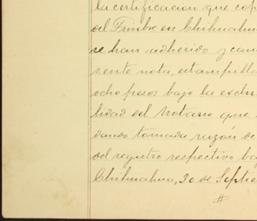 la certificacion que cop
del Timbre en Chihuahua
se han adherido y canc
sente nota, estampilla
ocho pesos bajo la exclu
lidad del Notario que
damos tomada razón de
del registro respectivo ba
Chihuahua, 30 de Septie